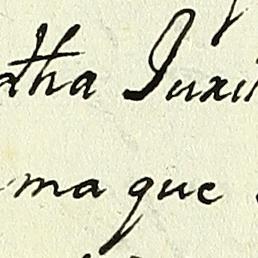 tha Juxi
ma que